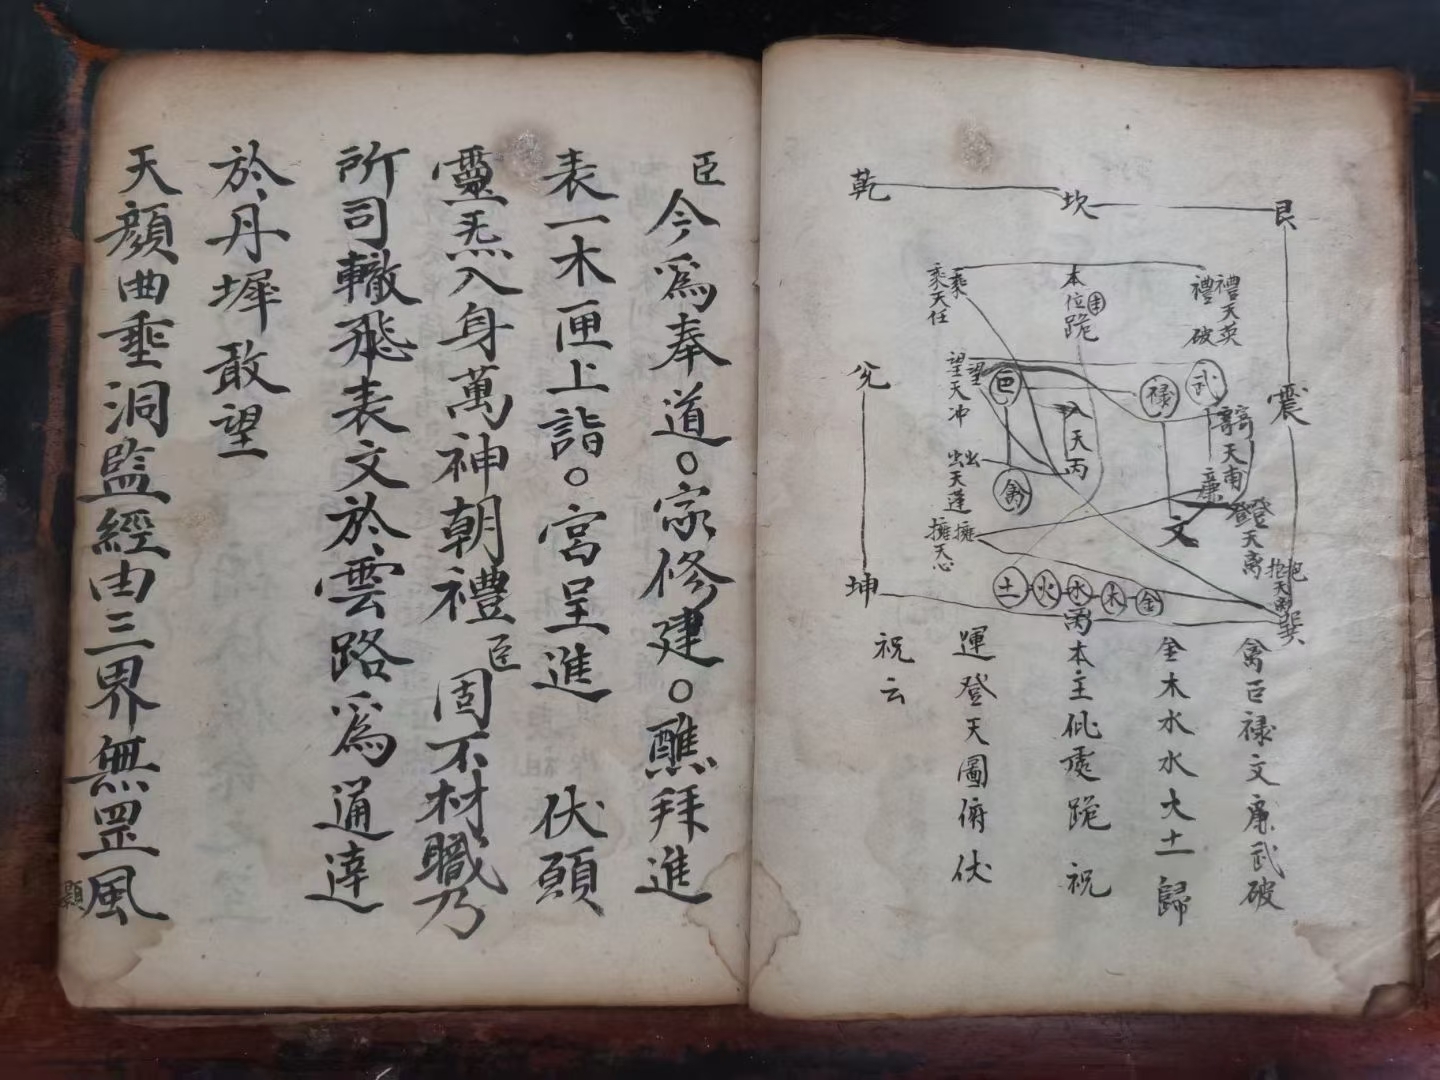 乾
坎
艮
兌
震
坤
巽
乘乘天任
本位
跪
禮禮天英
破
望望天冲
巨
祿
武
入天丙
天蓬
禽
廉
文
登登天禽
擁擁天心
土火水木金
禽巨禄文廉武破
金木水水火土歸
本主 處跪祝
運登天圖俯伏
祝云
臣今爲奉道○家修建○醮拜進
表一木匣上詣○宮呈進 伏願
靈炁入身萬神朝禮臣固不材職乃
所司轍飛表文於雲路爲通達
於丹墀敢望
天顔曲垂洞監經由三界無罡風